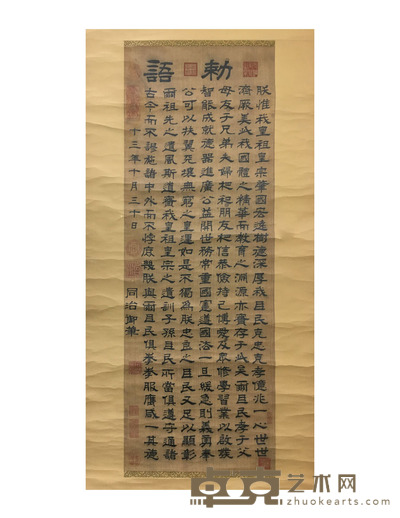 勅語
朕惟我皇祖皇宗肇國宏遠樹德深厚我臣民克忠克孝億兆一心世世
濟厥美此我國體之精華而教育之淵源亦實存于此矣爾臣民孝于父
母友于兄弟夫婦相和朋友相信恭儉持己博愛及衆修學習業以啟發
智能成就德器進廣公益開世務常重國憲遵國法一旦緩急則義勇奉
公可以扶翼天壤無窮之皇運如是不獨為朕忠良之臣民又足以顯彰
爾祖先之遺風斯道實我皇祖皇宗之遺訓子孫臣民所當俱遵守通諸
古今而不謬施諸中外而不悖庶幾朕與爾臣民俱拳拳服膺咸一其德
十三年十月三十日
同治御筆
卓克艺术网
zhuokearts.com